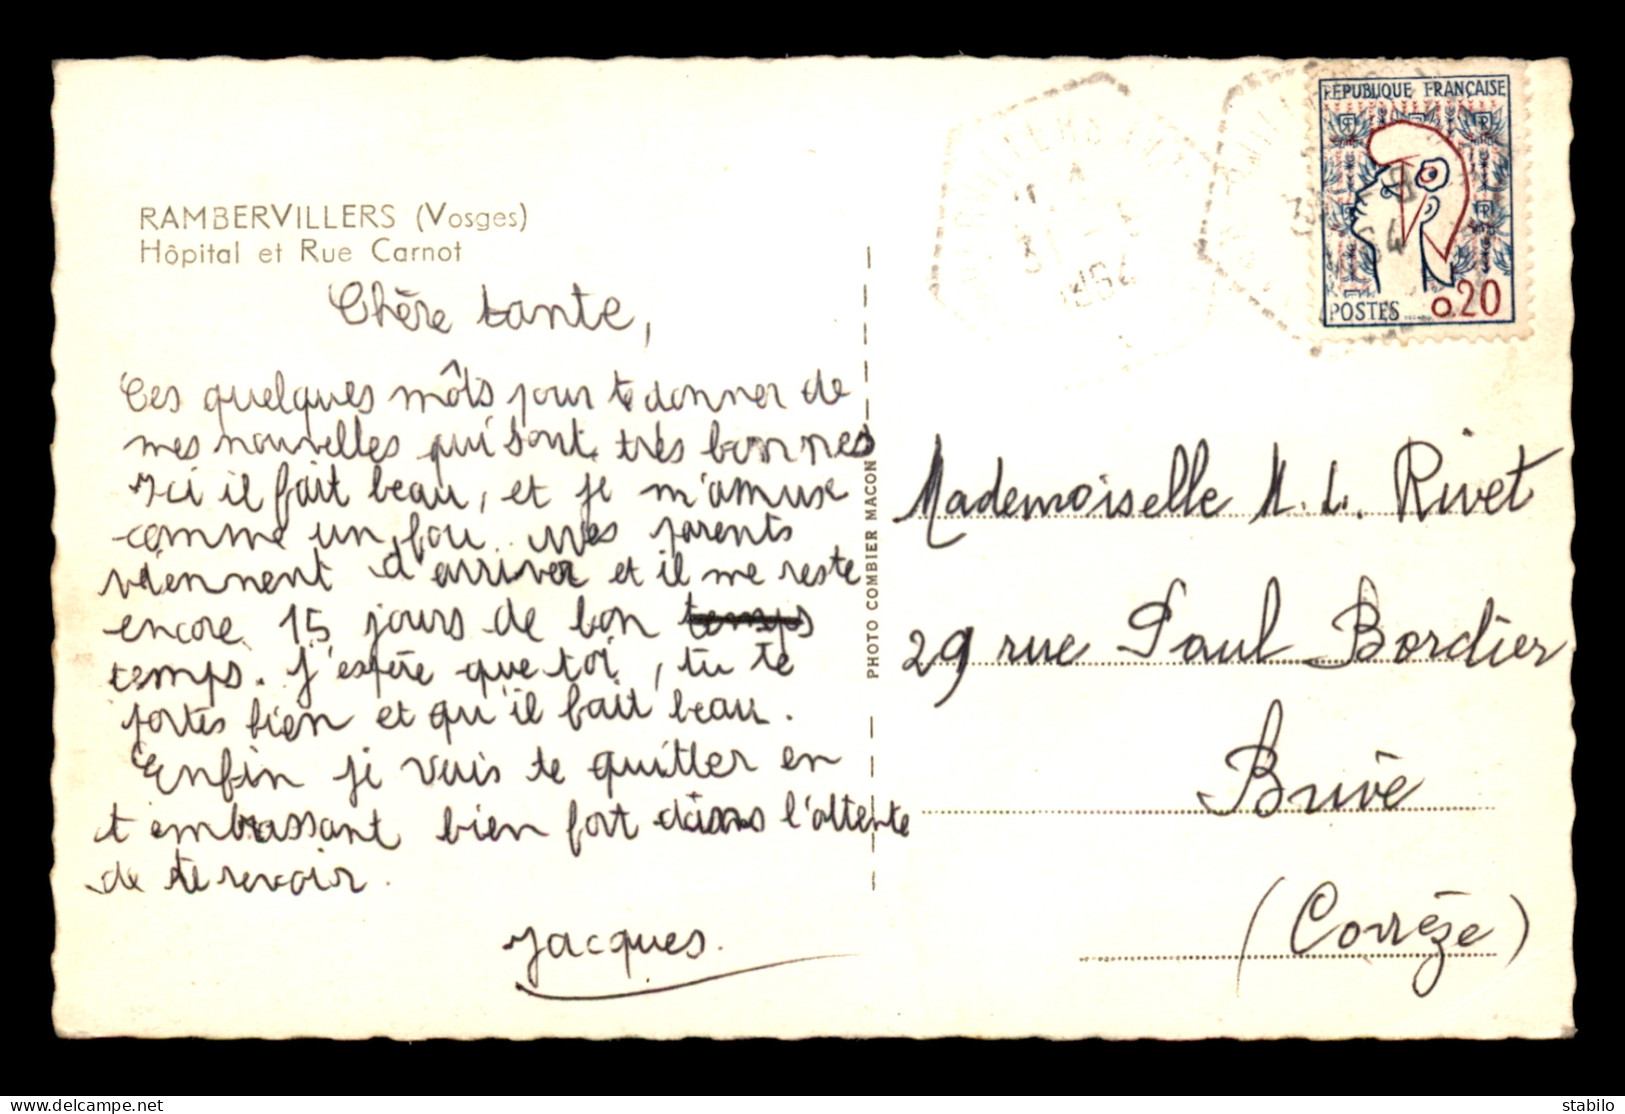 RAMBERVILLERS (Vosges)
Hôpital et Rue Carnot
Chère tante,
Ces quelques môts pour te donner de
mes nouvelles qui sont très bonnes
Ici il fait beau, et je m'amuse
comme un fou. mes parents
viennent d'arriver et il me reste
encore 15 jours de bon temps
temps. J'espère que toi, tu te
portes bien et qu'il fait beau.
Enfin je vais te quitter en
t'embrassant bien fort dans l'attente
de te revoir.
Jacques.
PHOTO COMBIER MACON
RÉPUBLIQUE FRANÇAISE
POSTES 0.20
Mademoiselle M. L. Rivet
29 rue Paul Bordier
Brive
(Corrèze)
stabilo